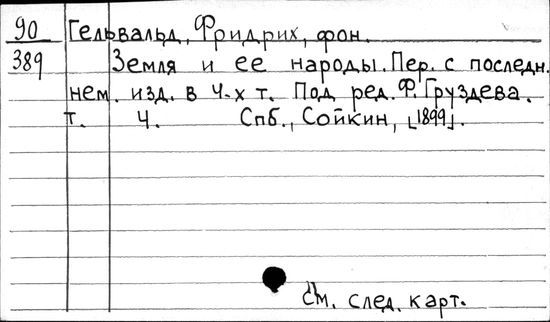 90 Гельвальд, Фридрих, фон.
389 Земля и ее народы. Пер. с последн.
нем. изд. в 4-х т. Под ред. Ф. Груздева.
т. 4. Спб., Сойкин, [1899].
См. след. карт.